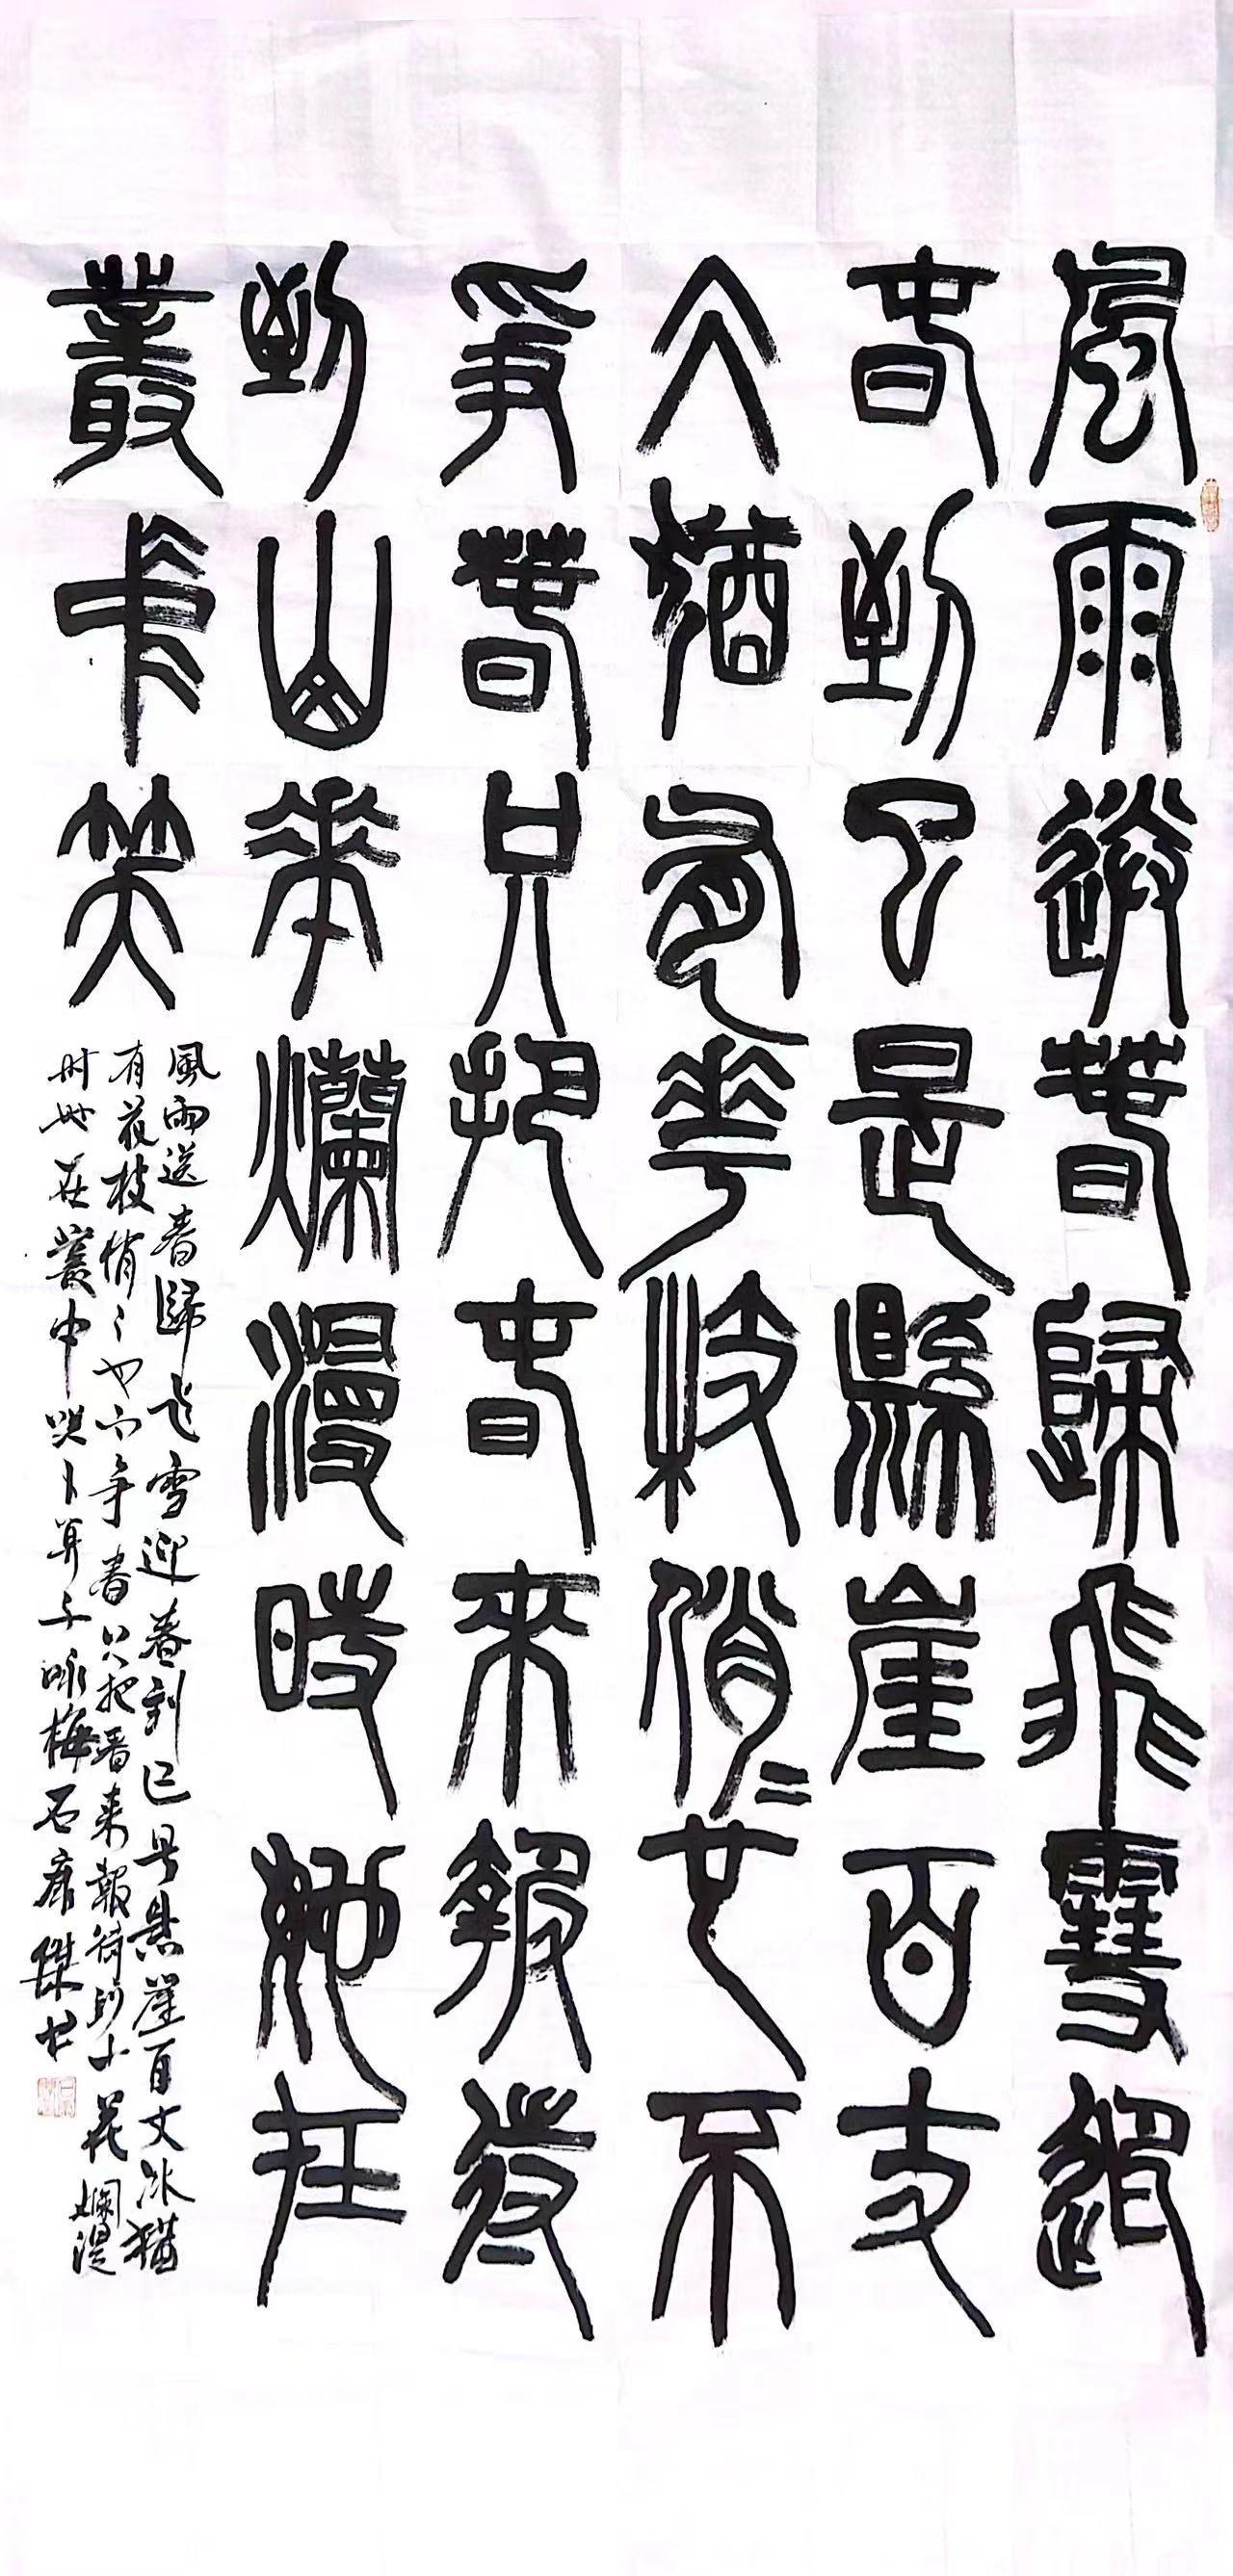 風雨送春歸飛雪迎
春到已是懸崖百丈
冰猶有花枝俏〻也不
爭春只把春來報待
到山花爛漫時她在
叢中笑
風雨送春歸飛雪迎春到已是懸崖百丈冰猶
有花枝俏〻也不爭春只把春来報待到山花爛漫
时她在叢中笑卜算子咏梅石齋傑书